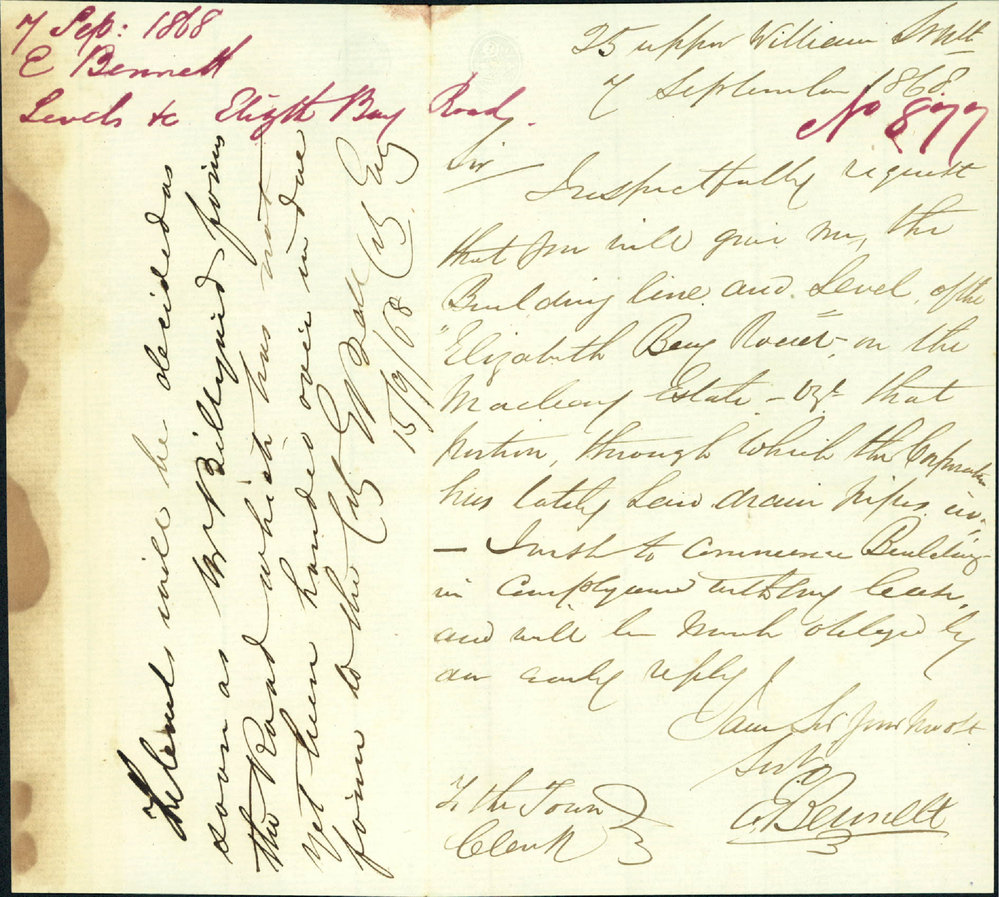 7 Sep: 1868
E Bennett
Levels &c Elizth Bay Road.
25 upper William Street
7 September 1868
No 877
Sir
I respectfully request
that you will give me, the
Building line and Level of the
"Elizabeth Bay Road" on the
Macleay Estate - Vizt that
portion, through which the Corporation
has lately laid drain pipes
- I wish to commence Building
in complyance with my lease,
and will be much obliged by
an early reply
I am Sir your most
Servt
E Bennett
To the Town
Clerk
The levels will be decided as
soon as Mr Billyard joins
the Road which has not
yet been handed over in due
form to the City
E Bell City Eng
15/9/68